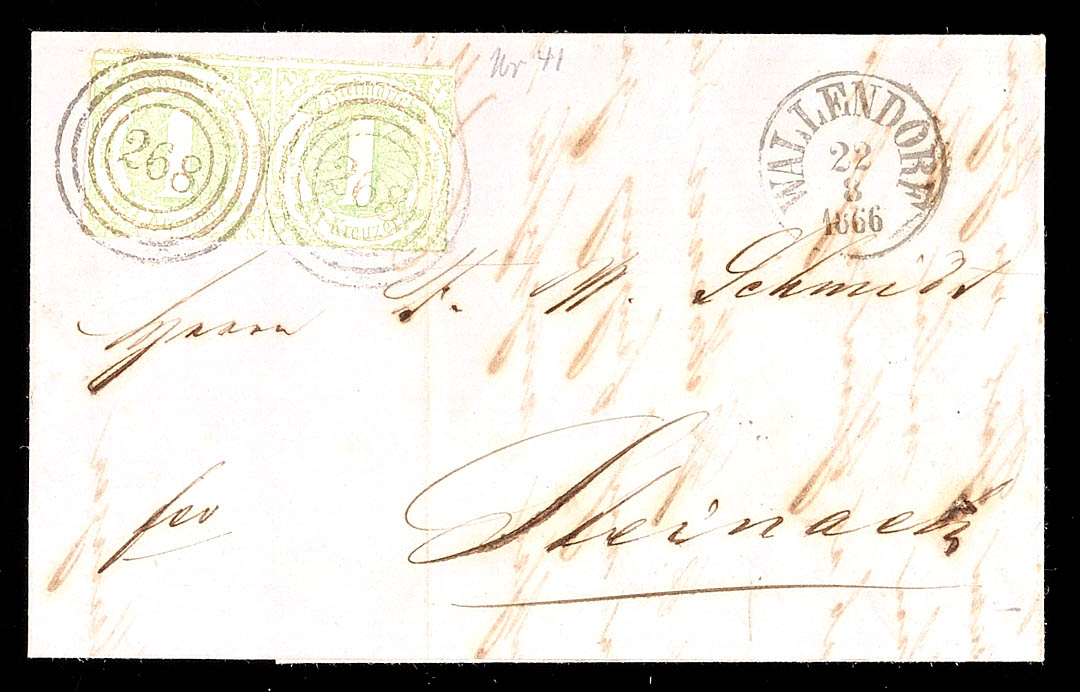 Nr 41
1
268
1
Kreuzer
268
WALLENDORF
22
8
1866
Herrn F. W. Schmidt
fco
Steinach